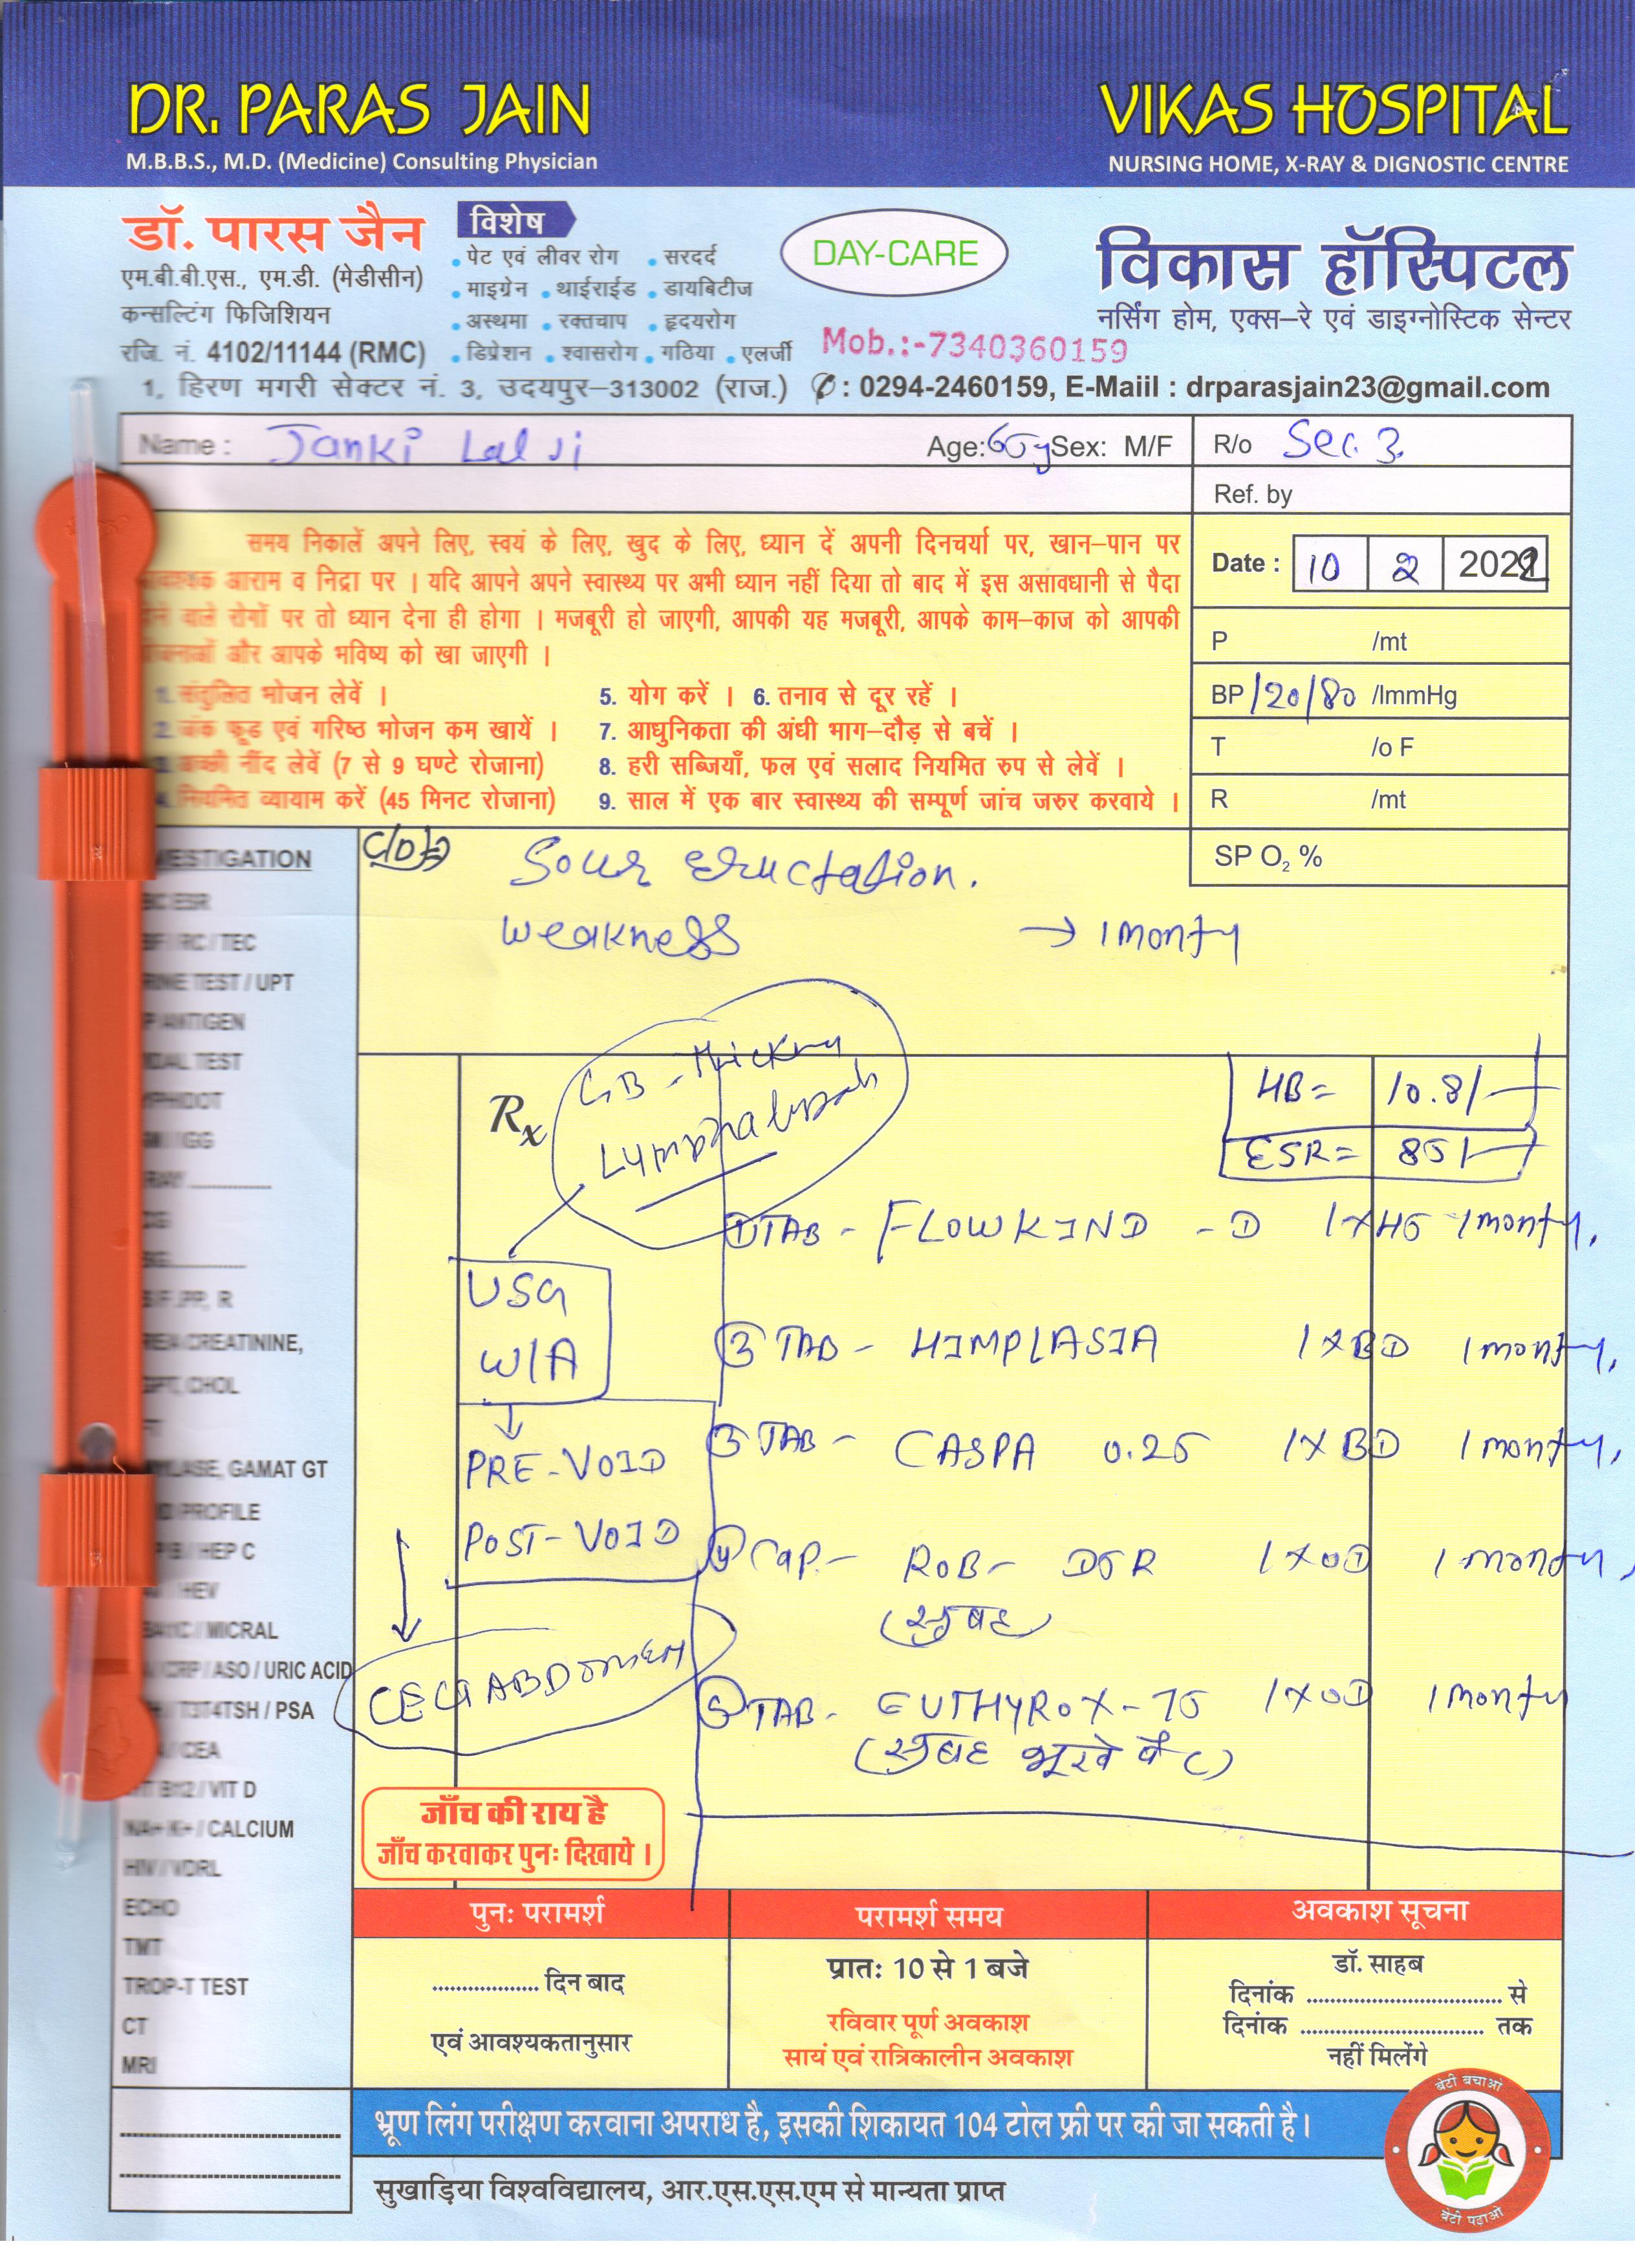 DR. PARAS JAIN
M.B.B.S., M.D. (Medicine) Consulting Physician
VIKAS HOSPITAL
NURSING HOME, X-RAY & DIGNOSTIC CENTRE
डॉ. पारस जैन
एम.बी.बी.एस., एम.डी. (मेडीसीन)
कन्सल्टिंग फिजिशियन
रजि. नं. 4102/11144 (RMC)
विशेष
• पेट एवं लीवर रोग • सरदर्द
• माइग्रेन • थाईराईड • डायबिटीज
• अस्थमा • रक्तचाप • हृदयरोग
• डिप्रेशन • श्वासरोग • गठिया • एलर्जी
DAY-CARE
Mob.:-7340360159
विकास हॉस्पिटल
नर्सिंग होम, एक्स-रे एवं डाइग्नोस्टिक सेन्टर
1, हिरण मगरी सेक्टर नं. 3, उदयपुर-313002 (राज.) ✆: 0294-2460159, E-Maiil : drparasjain23@gmail.com
Name : Janki Lal Ji Age: 65y Sex: M/F R/o Sec. 3
Ref. by
समय निकालें अपने लिए, स्वयं के लिए, खुद के लिए, ध्यान दें अपनी दिनचर्या पर, खान-पान पर
आराम व निद्रा पर । यदि आपने अपने स्वास्थ्य पर अभी ध्यान नहीं दिया तो बाद में इस असावधानी से पैदा
वाले रोगों पर तो ध्यान देना ही होगा । मजबूरी हो जाएगी, आपकी यह मजबूरी, आपके काम-काज को आपकी
और आपके भविष्य को खा जाएगी ।
1. संतुलित भोजन लेवें ।
2. जंक फूड एवं गरिष्ठ भोजन कम खायें ।
3. अच्छी नींद लेवें (7 से 9 घण्टे रोजाना)
4. नियमित व्यायाम करें (45 मिनट रोजाना)
5. योग करें । 6. तनाव से दूर रहें ।
7. आधुनिकता की अंधी भाग-दौड़ से बचें ।
8. हरी सब्जियाँ, फल एवं सलाद नियमित रुप से लेवें ।
9. साल में एक बार स्वास्थ्य की सम्पूर्ण जांच जरुर करवाये ।
Date : 10 2 2022
P /mt
BP 120/80 /ImmHg
T /o F
R /mt
SP O₂ %
Sour eructation.
weakness → 1 month
GB -
HB = 10.8/-
ESR = 85/-
Rx
① TAB - FLOWKIND - D 1 x HS 1 month,
② TAB - HIMPLASIA 1 x BD 1 month,
③ TAB - CASPA 0.25 1 x BD 1 month,
④ Cap. - ROB - DSR 1 x OD 1 month,
(सुबह)
⑤ TAB - EUTHYROX - 75 1 x OD 1 month
(सुबह भूखे पेट)
USG
W/A
↓
PRE-VOID
POST-VOID
CECT ABDOMEN
ESR
RC / TEC
TEST / UPT
ANTIGEN
TEST
CREATININE,
CHOL
GAMAT GT
PROFILE
HEP C
HEV
/ MICRAL
CRP / ASO / URIC ACID
T3T4TSH / PSA
/ CEA
B12 / VIT D
NA+ K+ / CALCIUM
HIV / VDRL
ECHO
TMT
TROP-T TEST
CT
MRI
जाँच की राय है
जाँच करवाकर पुनः दिखाये ।
पुनः परामर्श
.................. दिन बाद
एवं आवश्यकतानुसार
परामर्श समय
प्रातः 10 से 1 बजे
रविवार पूर्ण अवकाश
सायं एवं रात्रिकालीन अवकाश
अवकाश सूचना
डॉ. साहब
दिनांक .................. से
दिनांक .................. तक
नहीं मिलेंगे
भ्रूण लिंग परीक्षण करवाना अपराध है, इसकी शिकायत 104 टोल फ्री पर की जा सकती है।
सुखाड़िया विश्वविद्यालय, आर.एस.एस.एम से मान्यता प्राप्त
बेटी बचाओ
बेटी पढ़ाओ